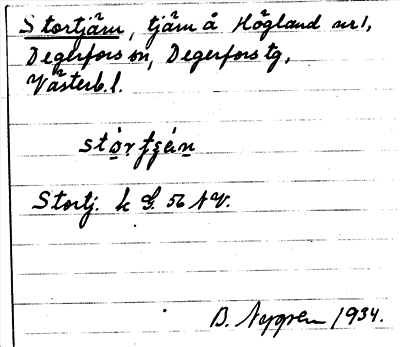 Stortjärn, tjärn å Högland nr 1,
Degerfors sn, Degerfors tg,
Västerb. l.
Stortj. k G. 56 NV.
B. Nygren 1934.